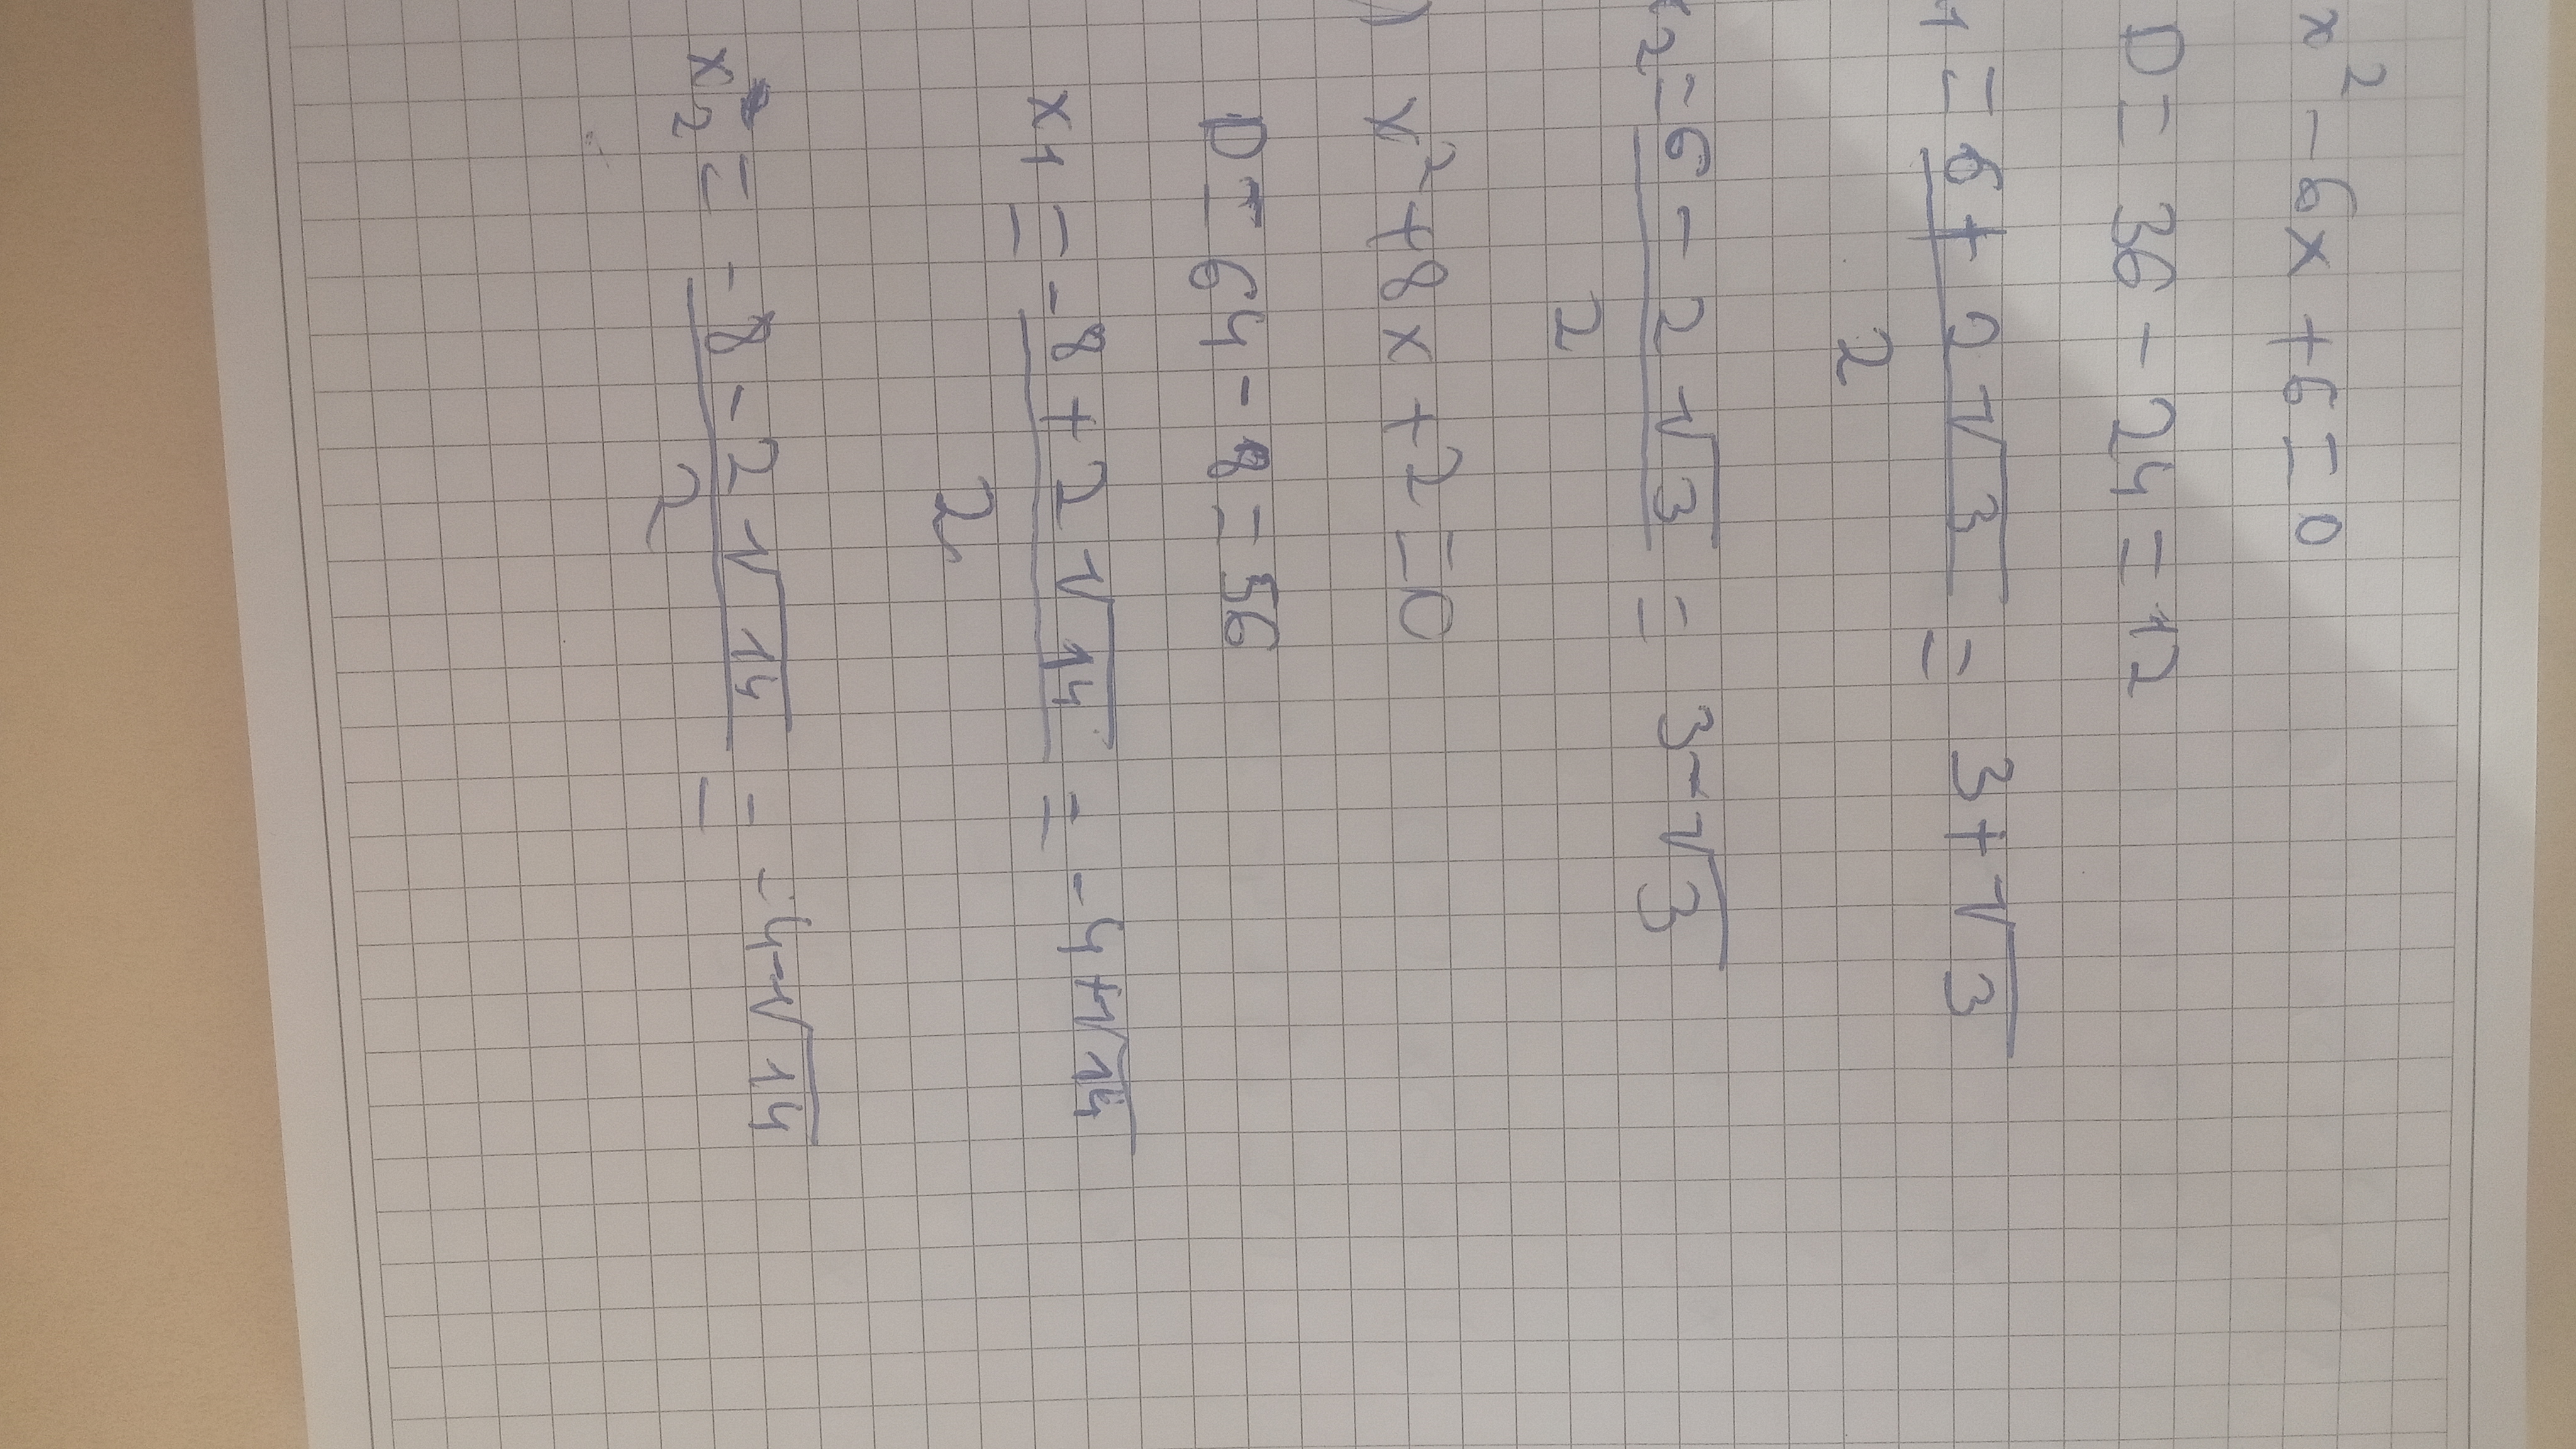 x² - 6x + 6 = 0
D = 36 - 24 = 12
1 = (6 + 2√3)/2 = 3 + √3
x2 = (6 - 2√3)/2 = 3 - √3
) x² + 8x + 2 = 0
D = 64 - 8 = 56
x1 = (-8 + 2√14)/2 = -4 + √14
x2 = (-8 - 2√14)/2 = -4 - √14